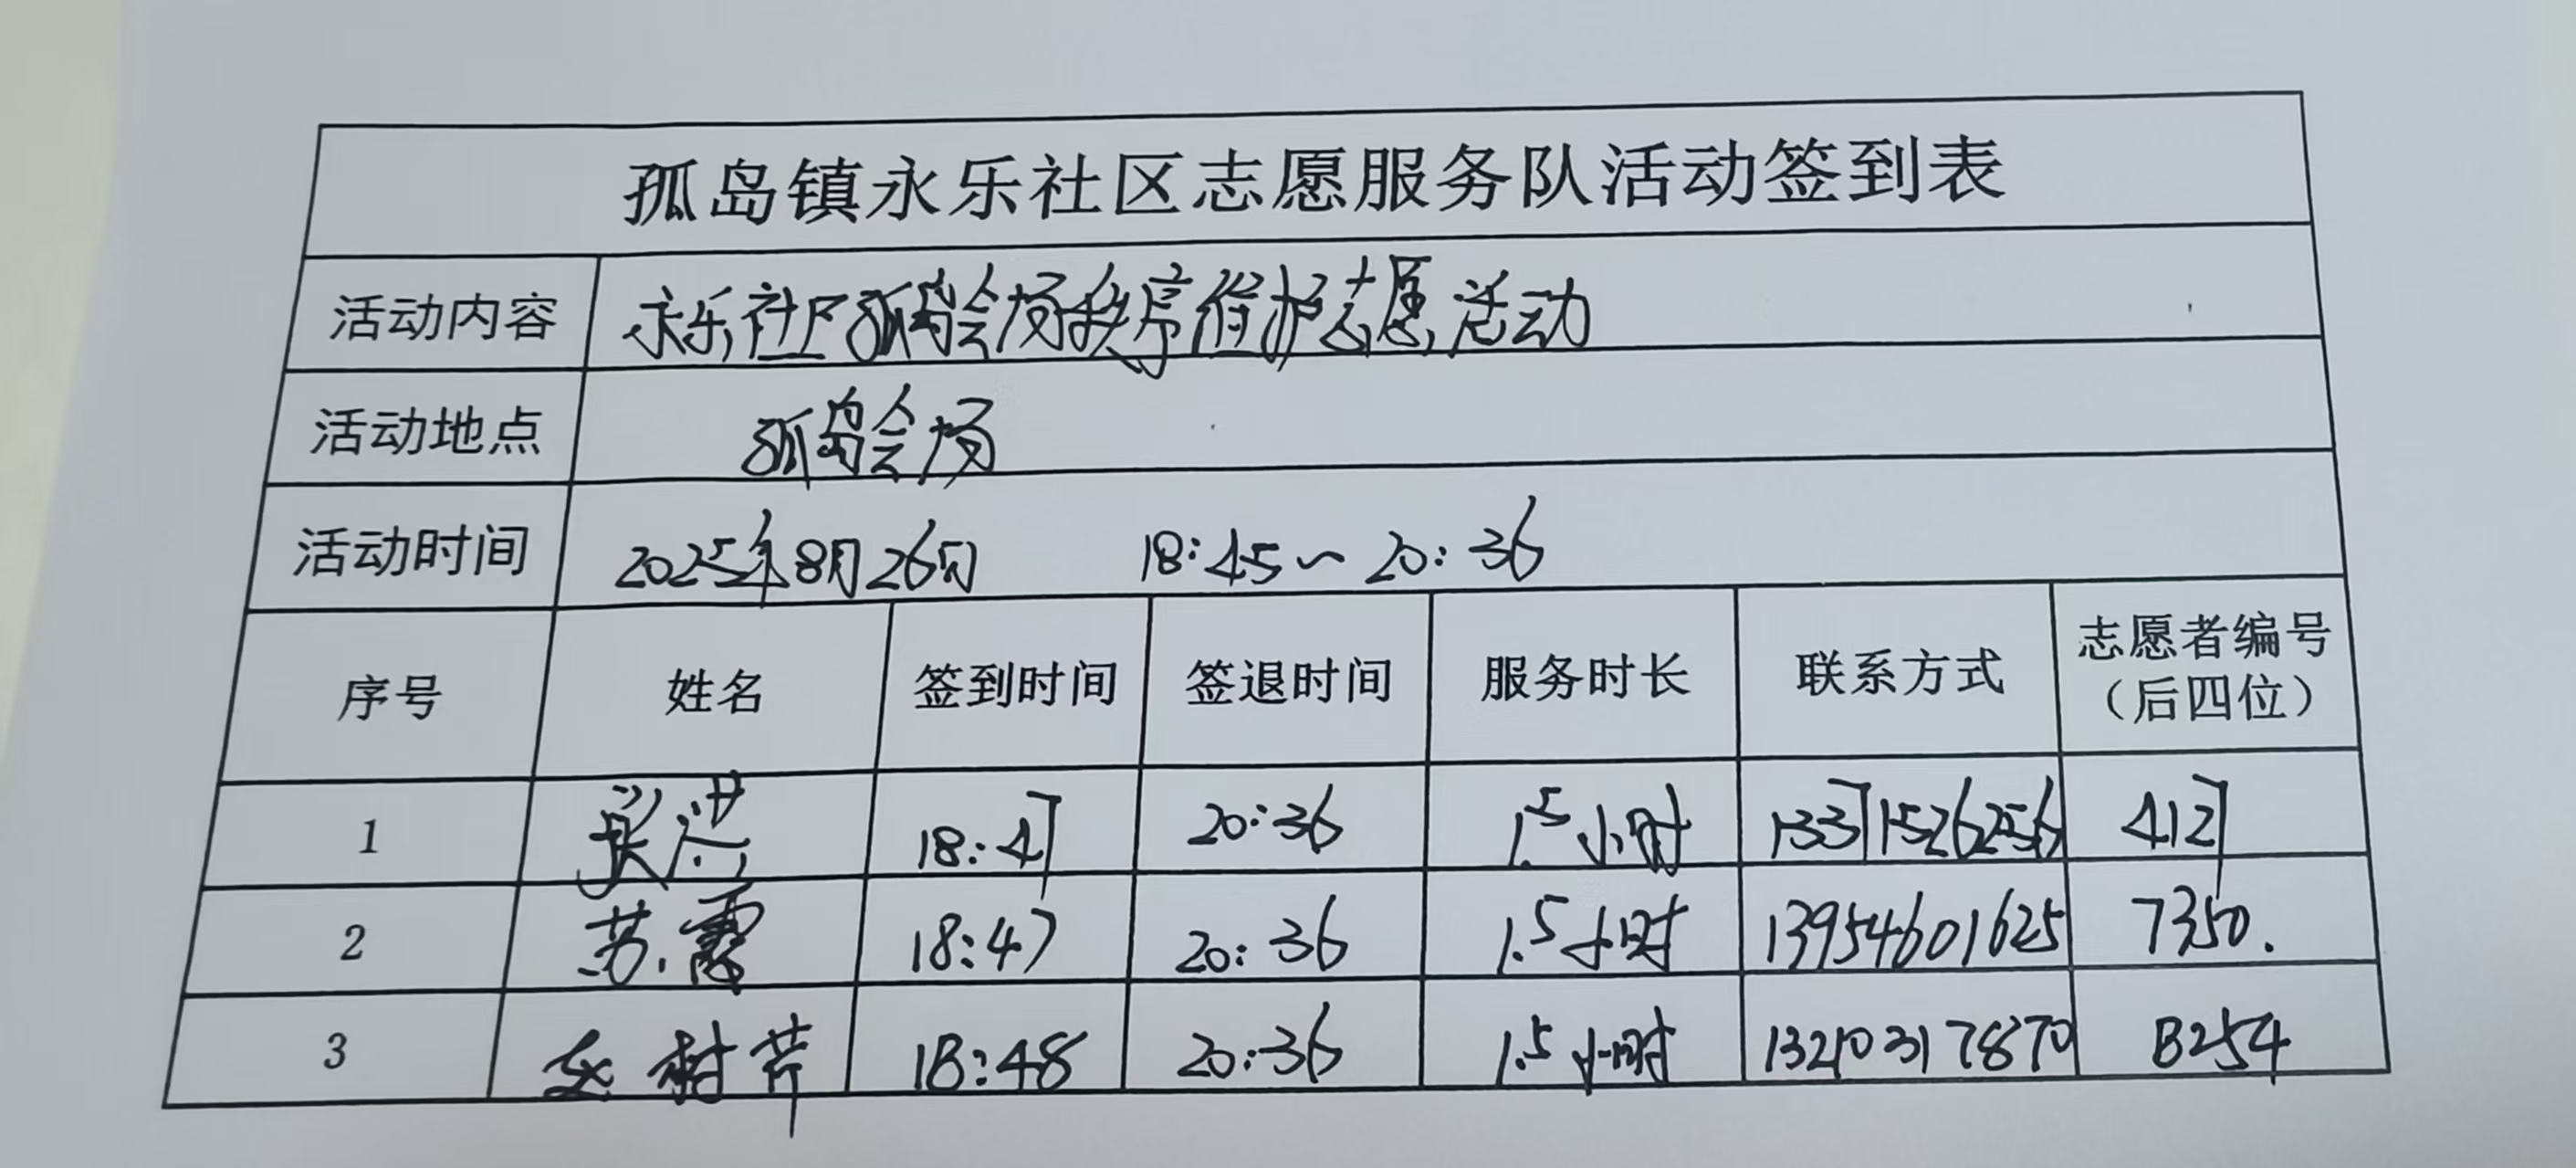 孤岛镇永乐社区志愿服务队活动签到表
活动内容 永乐社区孤岛会场秩序维护志愿活动
活动地点 孤岛会场
活动时间 2025年8月26日 18:45~20:36
序号 姓名 签到时间 签退时间 服务时长 联系方式 志愿者编号（后四位）
1 张 18:47 20:36 1.5小时 13371526256 4127
2 苏霞 18:47 20:36 1.5小时 13954601625 7350.
3 树芹 18:48 20:36 1.5小时 13210317870 8254